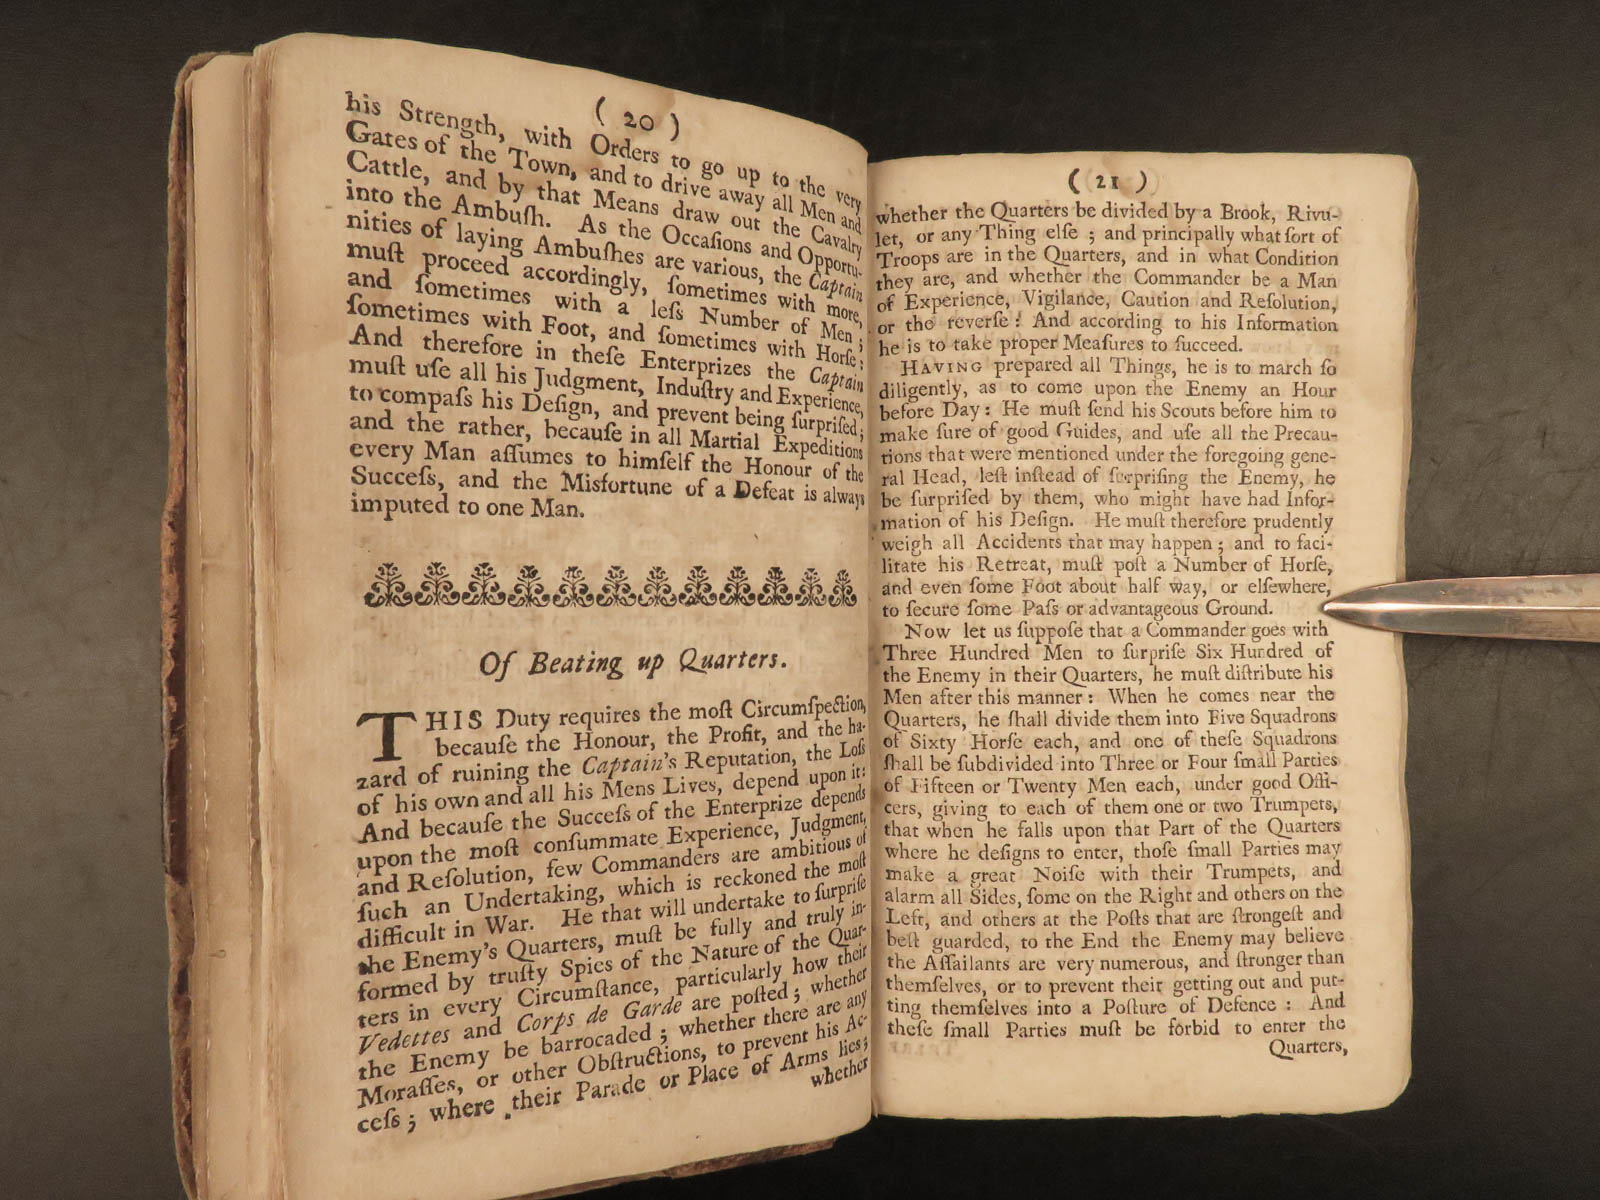 ( 20 )
his Strength, with Orders to go up to the very
Gates of the Town, and to drive away all Men and
Cattle, and by that Means draw out the Cavalry
into the Ambuſh. As the Occaſions and Opportu-
nities of laying Ambuſhes are various, the Captain
muſt proceed accordingly, ſometimes with more,
and ſometimes with a leſs Number of Men;
ſometimes with Foot, and ſometimes with Horſe:
And therefore in theſe Enterprizes the Captain
muſt uſe all his Judgment, Induſtry and Experience,
to compaſs his Deſign, and prevent being ſurpriſed;
and the rather, becauſe in all Martial Expeditions
every Man aſſumes to himſelf the Honour of the
Succeſs, and the Misfortune of a Defeat is always
imputed to one Man.
Of Beating up Quarters.
THIS Duty requires the moſt Circumſpection,
becauſe the Honour, the Profit, and the ha-
zard of ruining the Captain's Reputation, the Loſs
of his own and all his Mens Lives, depend upon it:
And becauſe the Succeſs of the Enterprize depends
upon the moſt conſummate Experience, Judgment,
and Reſolution, few Commanders are ambitious of
ſuch an Undertaking, which is reckoned the moſt
difficult in War. He that will undertake to ſurpriſe
the Enemy's Quarters, muſt be fully and truly in-
formed by truſty Spies of the Nature of the Quar-
ters in every Circumſtance, particularly how their
Vedettes and Corps de Garde are poſted; whether
the Enemy be barrocaded; whether there are any
Moraſſes, or other Obſtructions, to prevent his Ac-
ceſs; where their Parade or Place of Arms lies;
whether
( 21 )
whether the Quarters be divided by a Brook, Rivu-
let, or any Thing elſe; and principally what ſort of
Troops are in the Quarters, and in what Condition
they are, and whether the Commander be a Man
of Experience, Vigilance, Caution and Reſolution,
or the reverſe: And according to his Information
he is to take proper Meaſures to ſucceed.
HAVING prepared all Things, he is to march ſo
diligently, as to come upon the Enemy an Hour
before Day: He muſt ſend his Scouts before him to
make ſure of good Guides, and uſe all the Precau-
tions that were mentioned under the foregoing gene-
ral Head, leſt inſtead of ſurpriſing the Enemy, he
be ſurpriſed by them, who might have had Infor-
mation of his Deſign. He muſt therefore prudently
weigh all Accidents that may happen; and to faci-
litate his Retreat, muſt poſt a Number of Horſe,
and even ſome Foot about half way, or elſewhere,
to ſecure ſome Paſs or advantageous Ground.
Now let us ſuppoſe that a Commander goes with
Three Hundred Men to ſurpriſe Six Hundred of
the Enemy in their Quarters, he muſt diſtribute his
Men after this manner: When he comes near the
Quarters, he ſhall divide them into Five Squadrons
of Sixty Horſe each, and one of theſe Squadrons
ſhall be ſubdivided into Three or Four ſmall Parties
of Fifteen or Twenty Men each, under good Offi-
cers, giving to each of them one or two Trumpets,
that when he falls upon that Part of the Quarters
where he deſigns to enter, thoſe ſmall Parties may
make a great Noiſe with their Trumpets, and
alarm all Sides, ſome on the Right and others on the
Left, and others at the Poſts that are ſtrongeſt and
beſt guarded, to the End the Enemy may believe
the Aſſailants are very numerous, and ſtronger than
themſelves, or to prevent their getting out and put-
ting themſelves into a Poſture of Defence: And
theſe ſmall Parties muſt be forbid to enter the
Quarters,